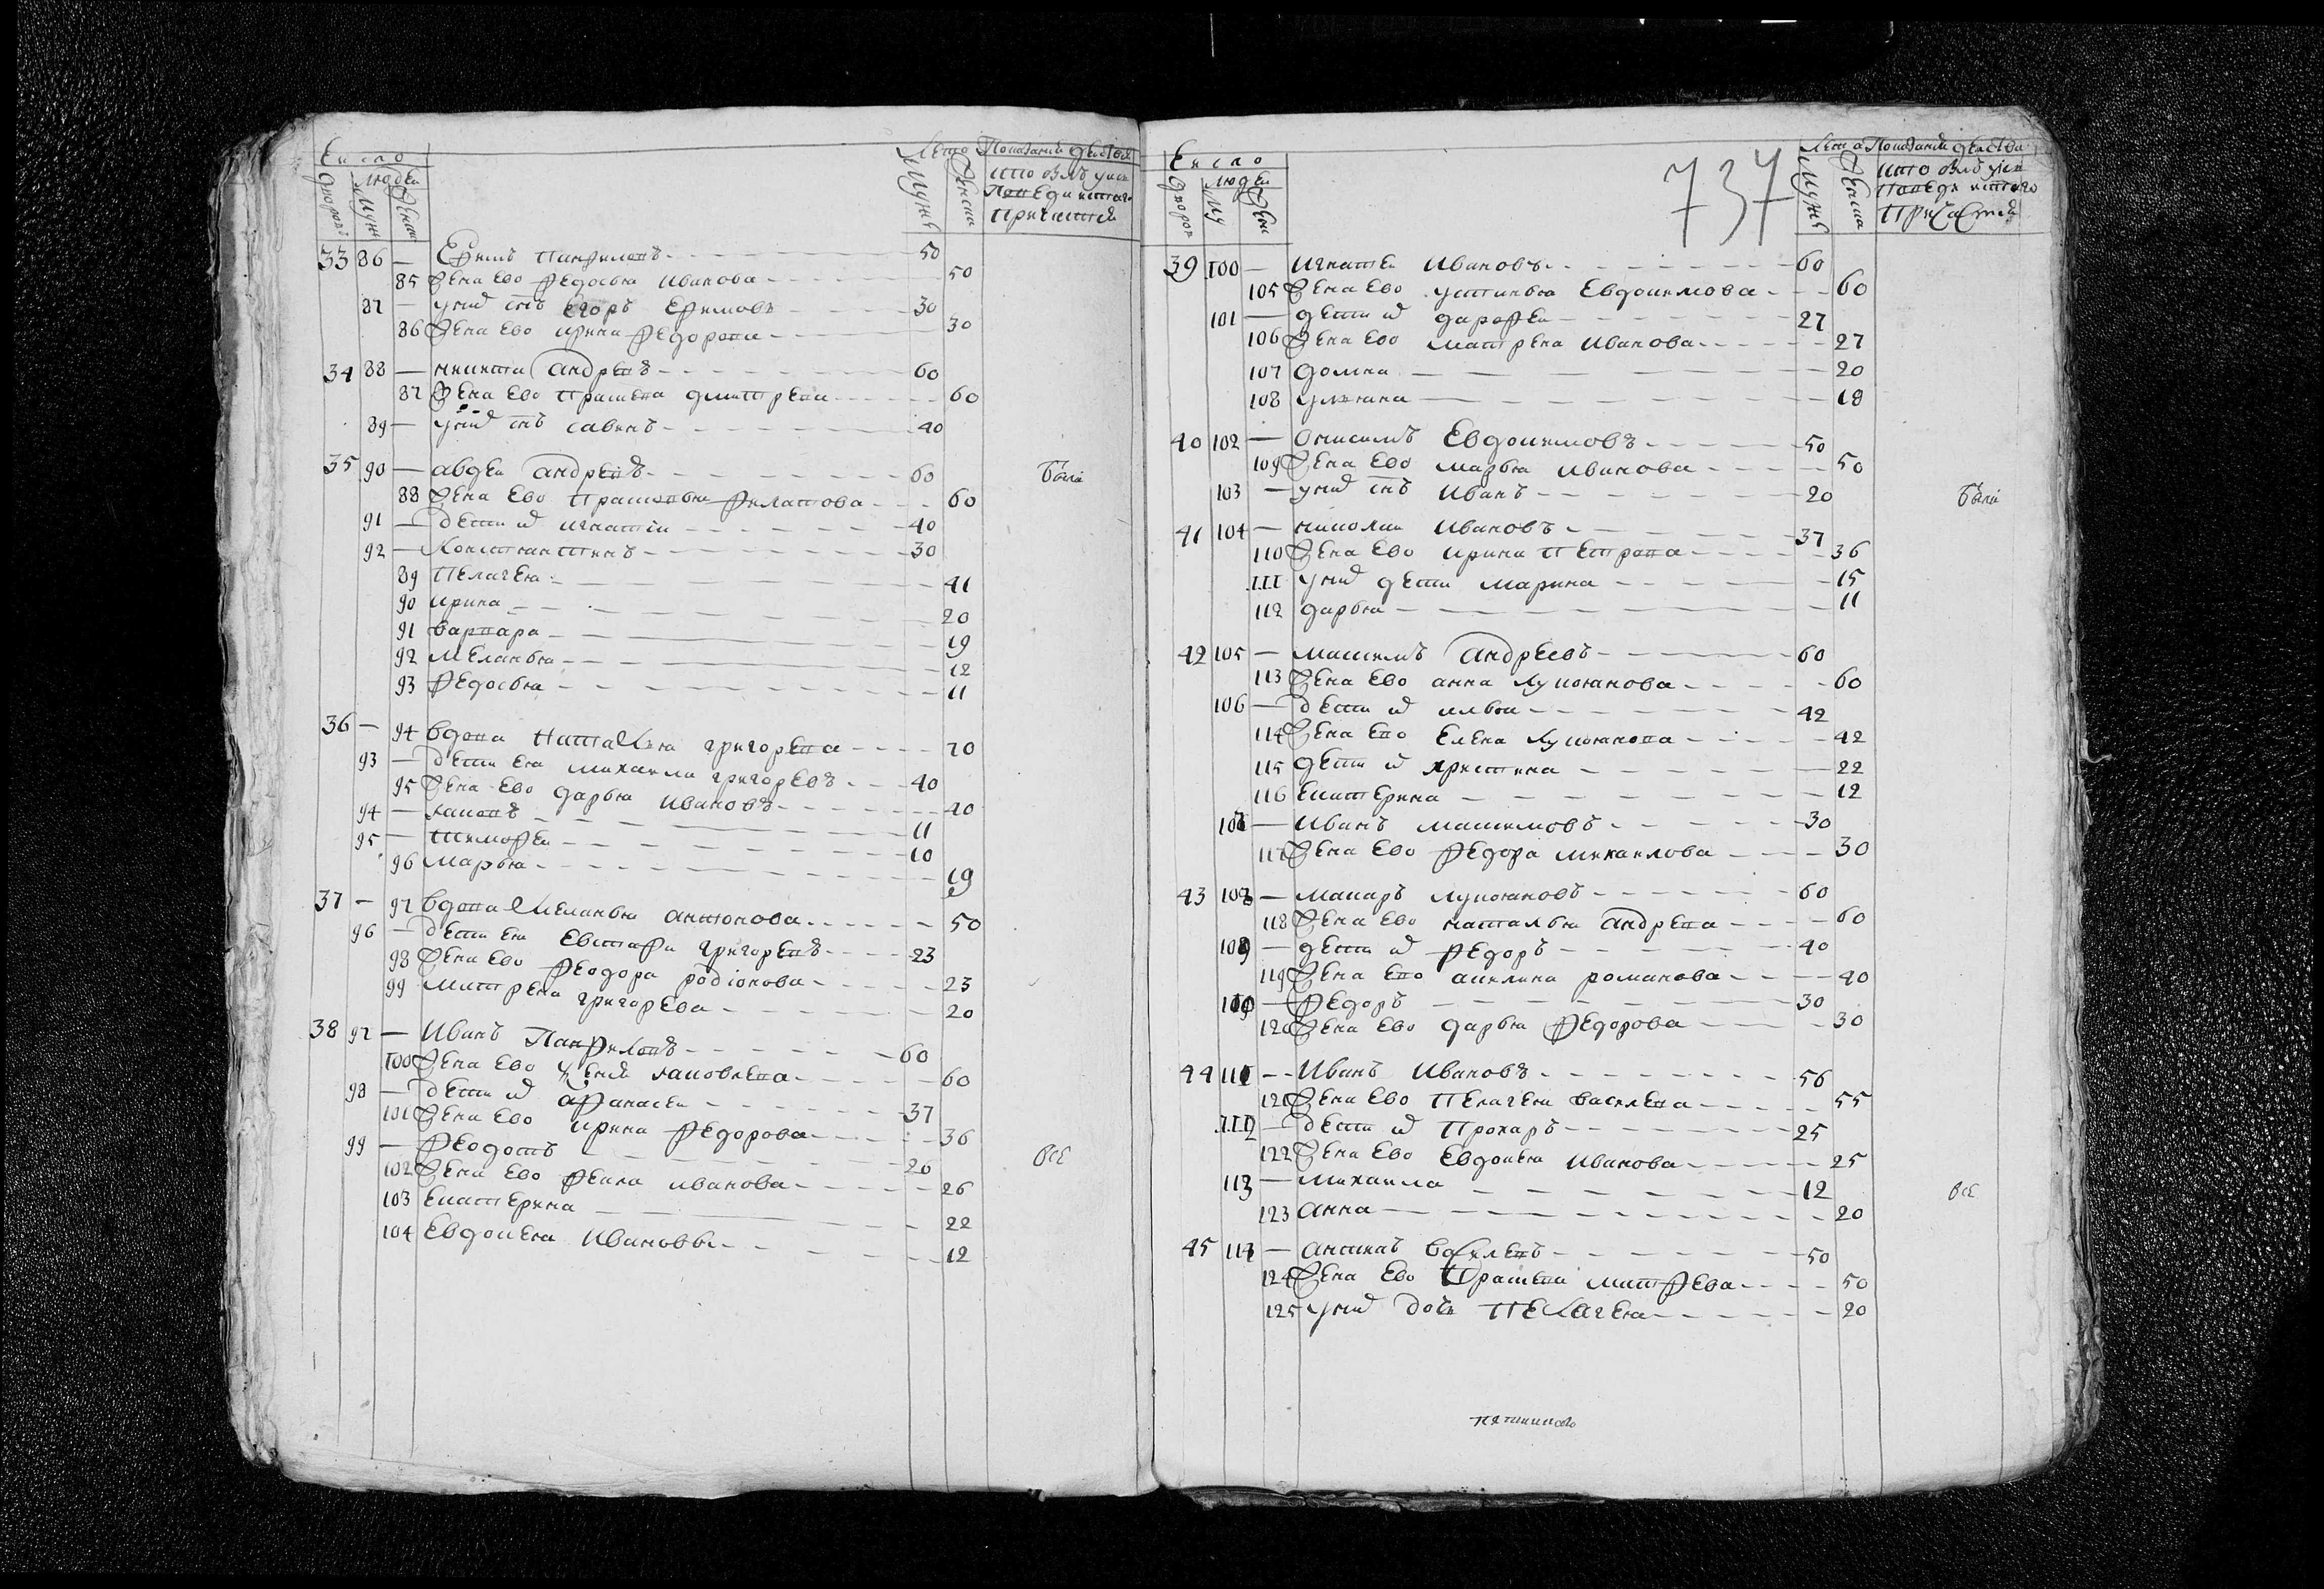 Число
Людей
дворовъ
Мужи
Женск
Лета
Мужи
Женска
Показания действа
кто былъ у ис
поведи и свтаго
причастия
33 86 — Ефимъ Панфиловъ 50
85 Жена Ево Федосья Иванова 50
87 — у нихъ снъ Егоръ Ефимовъ 30
86 Жена Ево Ирина Федорова 30
34 88 — Никита Андревъ 60
87 Жена Ево Прасковя Дмитрева 60
89 — у нихъ снъ Савинъ 40
35 90 — Авдеи Андревъ 60 были
88 Жена Ево Прасковья Филатова 60
91 — Дети их Игнатiи 40
92 — Константинъ 30
89 Пелагея 41
90 Ирина 20
91 Варвара 19
92 Меланья 12
93 Федосья 11
36 — 94 вдова Наталья Григорева 70
93 — Дети Ея Михаила Григоревъ 40
95 Жена Ево Дарья Ивановъ 40
94 — Яковъ 11
95 — Тимофеи 10
96 Марья 19
37 — 97 вдова Меланья Антонова 50
96 — Дети Ея Евстафи Григоревъ 23
98 Жена Ево Феодора Родiонова 23
99 Матрена Григорева 20
38 97 — Иванъ Панфиловъ 60
100 Жена Ево Яковлева 60
98 — Дети их Афанасеи 37
101 Жена Ево Ирина Федорова 36
99 — Феодотъ 26 все
102 Жена Ево Фекла Иванова 26
103 Екатерина 22
104 Евдокея Ивановы 12
737
Число
Людей
дворов
Му
Жен
Лета
Мужи
Женска
Показания действа
кто былъ у ис
поведи и свтаго
причастия
39 100 — Игнатеи Ивановъ 60
105 Жена Ево Устинья Евдокимова 60
101 — Дети их Дарофеи 27
106 Жена Ево Матрена Иванова 27
107 Домна 20
108 Ульяна 18
40 102 — Онисимъ Евдокимовъ 50
109 Жена Ево Марья Иванова 50
103 — у нихъ снъ Иванъ 20 были
41 104 — Николаи Ивановъ 37
110 Жена Ево Ирина Петрова 36
111 у них дети Марина 15
112 Дарья 11
42 105 — Максимъ Андреевъ 60
113 Жена Ево Анна Лукоянова 60
106 — Дети их Илья 42
114 Жена Ево Елена Лукоянова 42
115 Дети их Христина 22
116 Екатерина 12
107 — Иванъ Максимовъ 30
117 Жена Ево Федора Михаилова 30
43 108 — Макаръ Лукояновъ 60
118 Жена Ево Наталья Андрева 60
109 — Дети их Федоръ 40
119 Жена Ево Акилина Романова 40
110 — Федоръ 30
120 Жена Ево Дарья Федорова 30
44 111 — Иванъ Ивановъ 56
121 Жена Ево Пелагея Василева 55
112 — Дети их Прохаръ 25
122 Жена Ево Евдокея Иванова 25
113 — Михаила 12 все
123 Анна 20
45 114 — Антипъ Василевъ 50
124 Жена Ево Прасковя Митрева 50
125 у них дочь Пелагея 20